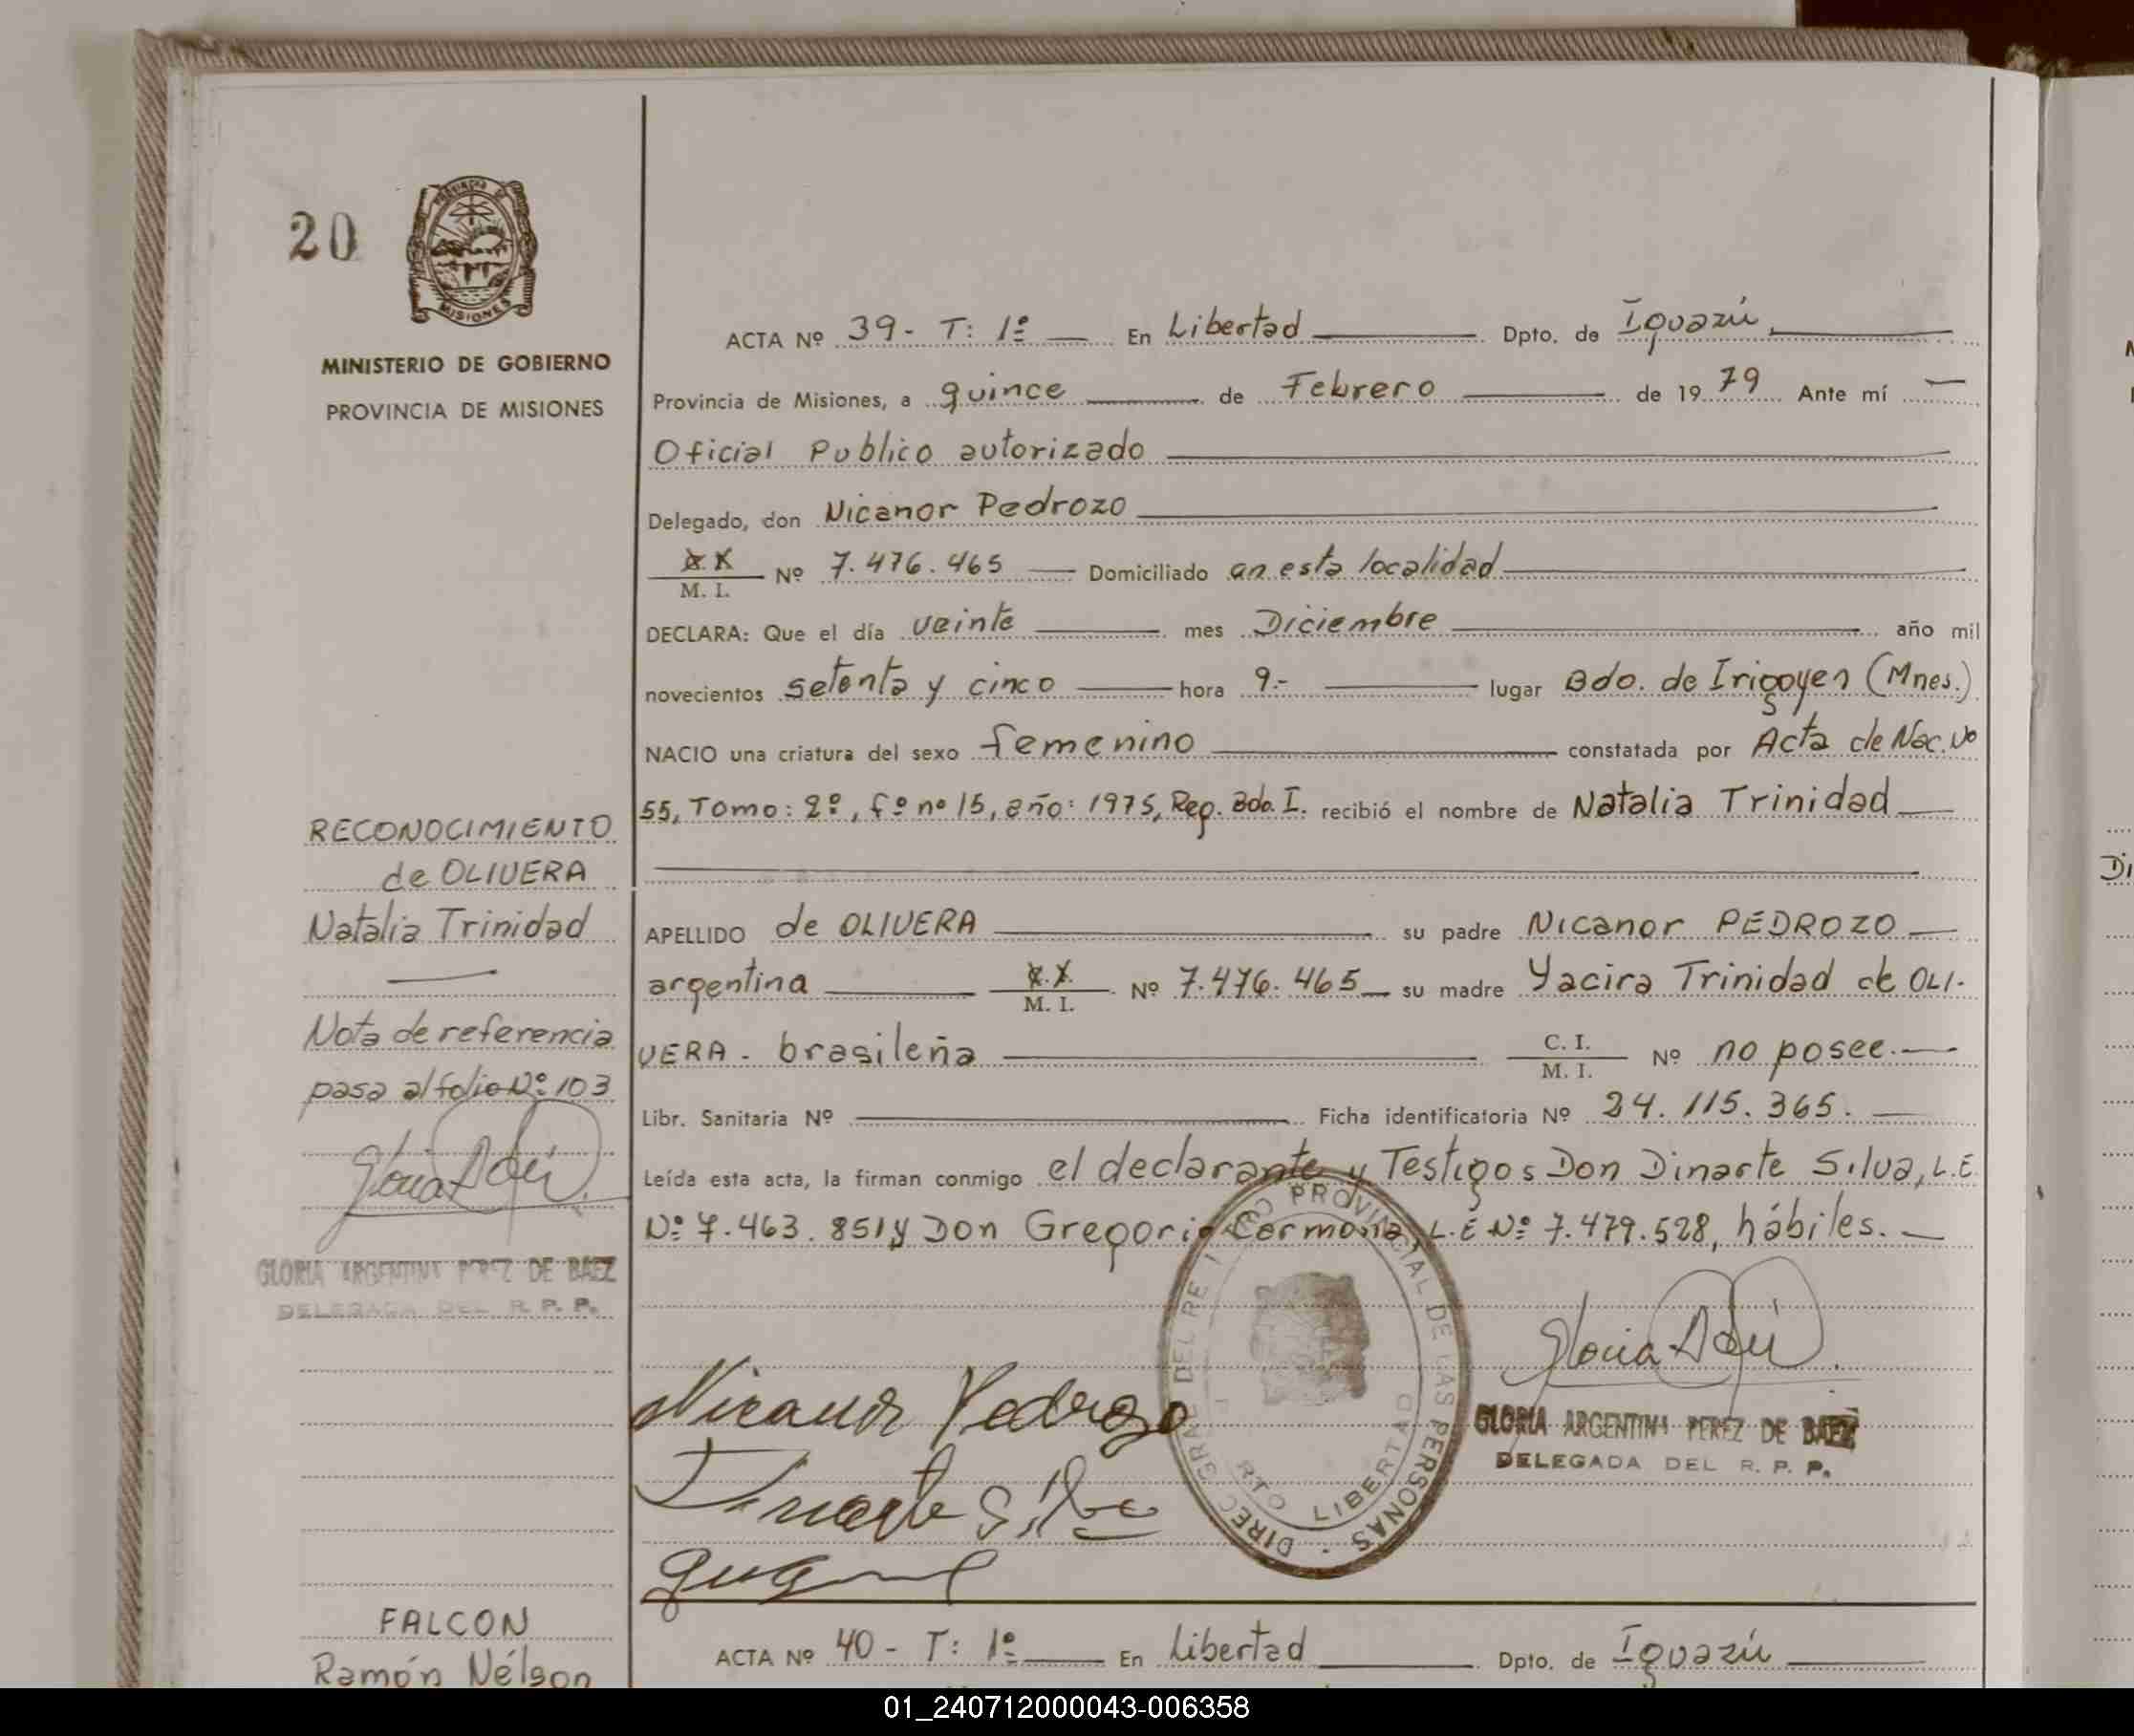 20
PROVINCIA DE
MISIONES
MINISTERIO DE GOBIERNO
PROVINCIA DE MISIONES
ACTA Nº 39- T: 1º En Libertad Dpto. de Iguazú
Provincia de Misiones, a quince de Febrero de 1979 Ante mí
Oficial Publico autorizado
Delegado, don Nicanor Pedrozo
M. I. Nº 7.476.465 Domiciliado en esta localidad
DECLARA: Que el día veinte mes Diciembre año mil
novecientos setenta y cinco hora 9.- lugar Bdo. de Irigoyen (Mnes.)
NACIO una criatura del sexo femenino constatada por Acta de Nac. Nº
55, Tomo: 2º, fº nº 15, año: 1975, Reg. Bdo. I. recibió el nombre de Natalia Trinidad
RECONOCIMIENTO
de OLIVERA
Natalia Trinidad
Nota de referencia
pasa al folio Nº 103
GLORIA ARGENTINA PEREZ DE BAEZ
DELEGADA DEL R. P. P.
APELLIDO de OLIVERA su padre Nicanor PEDROZO
argentina M. I. Nº 7.476.465 su madre Yacira Trinidad de OLI-
VERA - brasileña C. I. M. I. Nº no posee.
Libr. Sanitaria Nº Ficha identificatoria Nº 24.115.365.
Leída esta acta, la firman conmigo el declarante y Testigos Don Dinarte Silva, L.E
Nº 7.463.851 y Don Gregorio Carmona, L.E Nº 7.479.528, hábiles.
Nicanor Pedrozo
Dinarte Silva
GLORIA ARGENTINA PEREZ DE BAEZ
DELEGADA DEL R. P. P.
PROVINCIAL DE LAS PERSONAS
LIBERTAD
FALCON
Ramón Nélson
ACTA Nº 40 - T: 1º En Libertad Dpto. de Iguazú
01_240712000043-006358